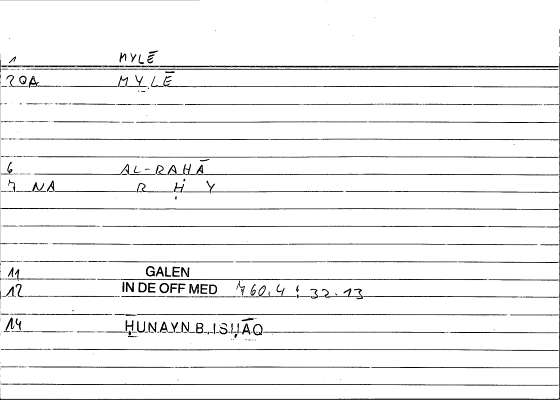 1 MYLĒ
2 QA MỴLĒ
6 AL-RAḤĀ
7 NA R Ḥ Y
11 GALEN
12 IN DE OFF MED 760.4 : 32.13
14 ḤUNAYN B. ISḤĀQ